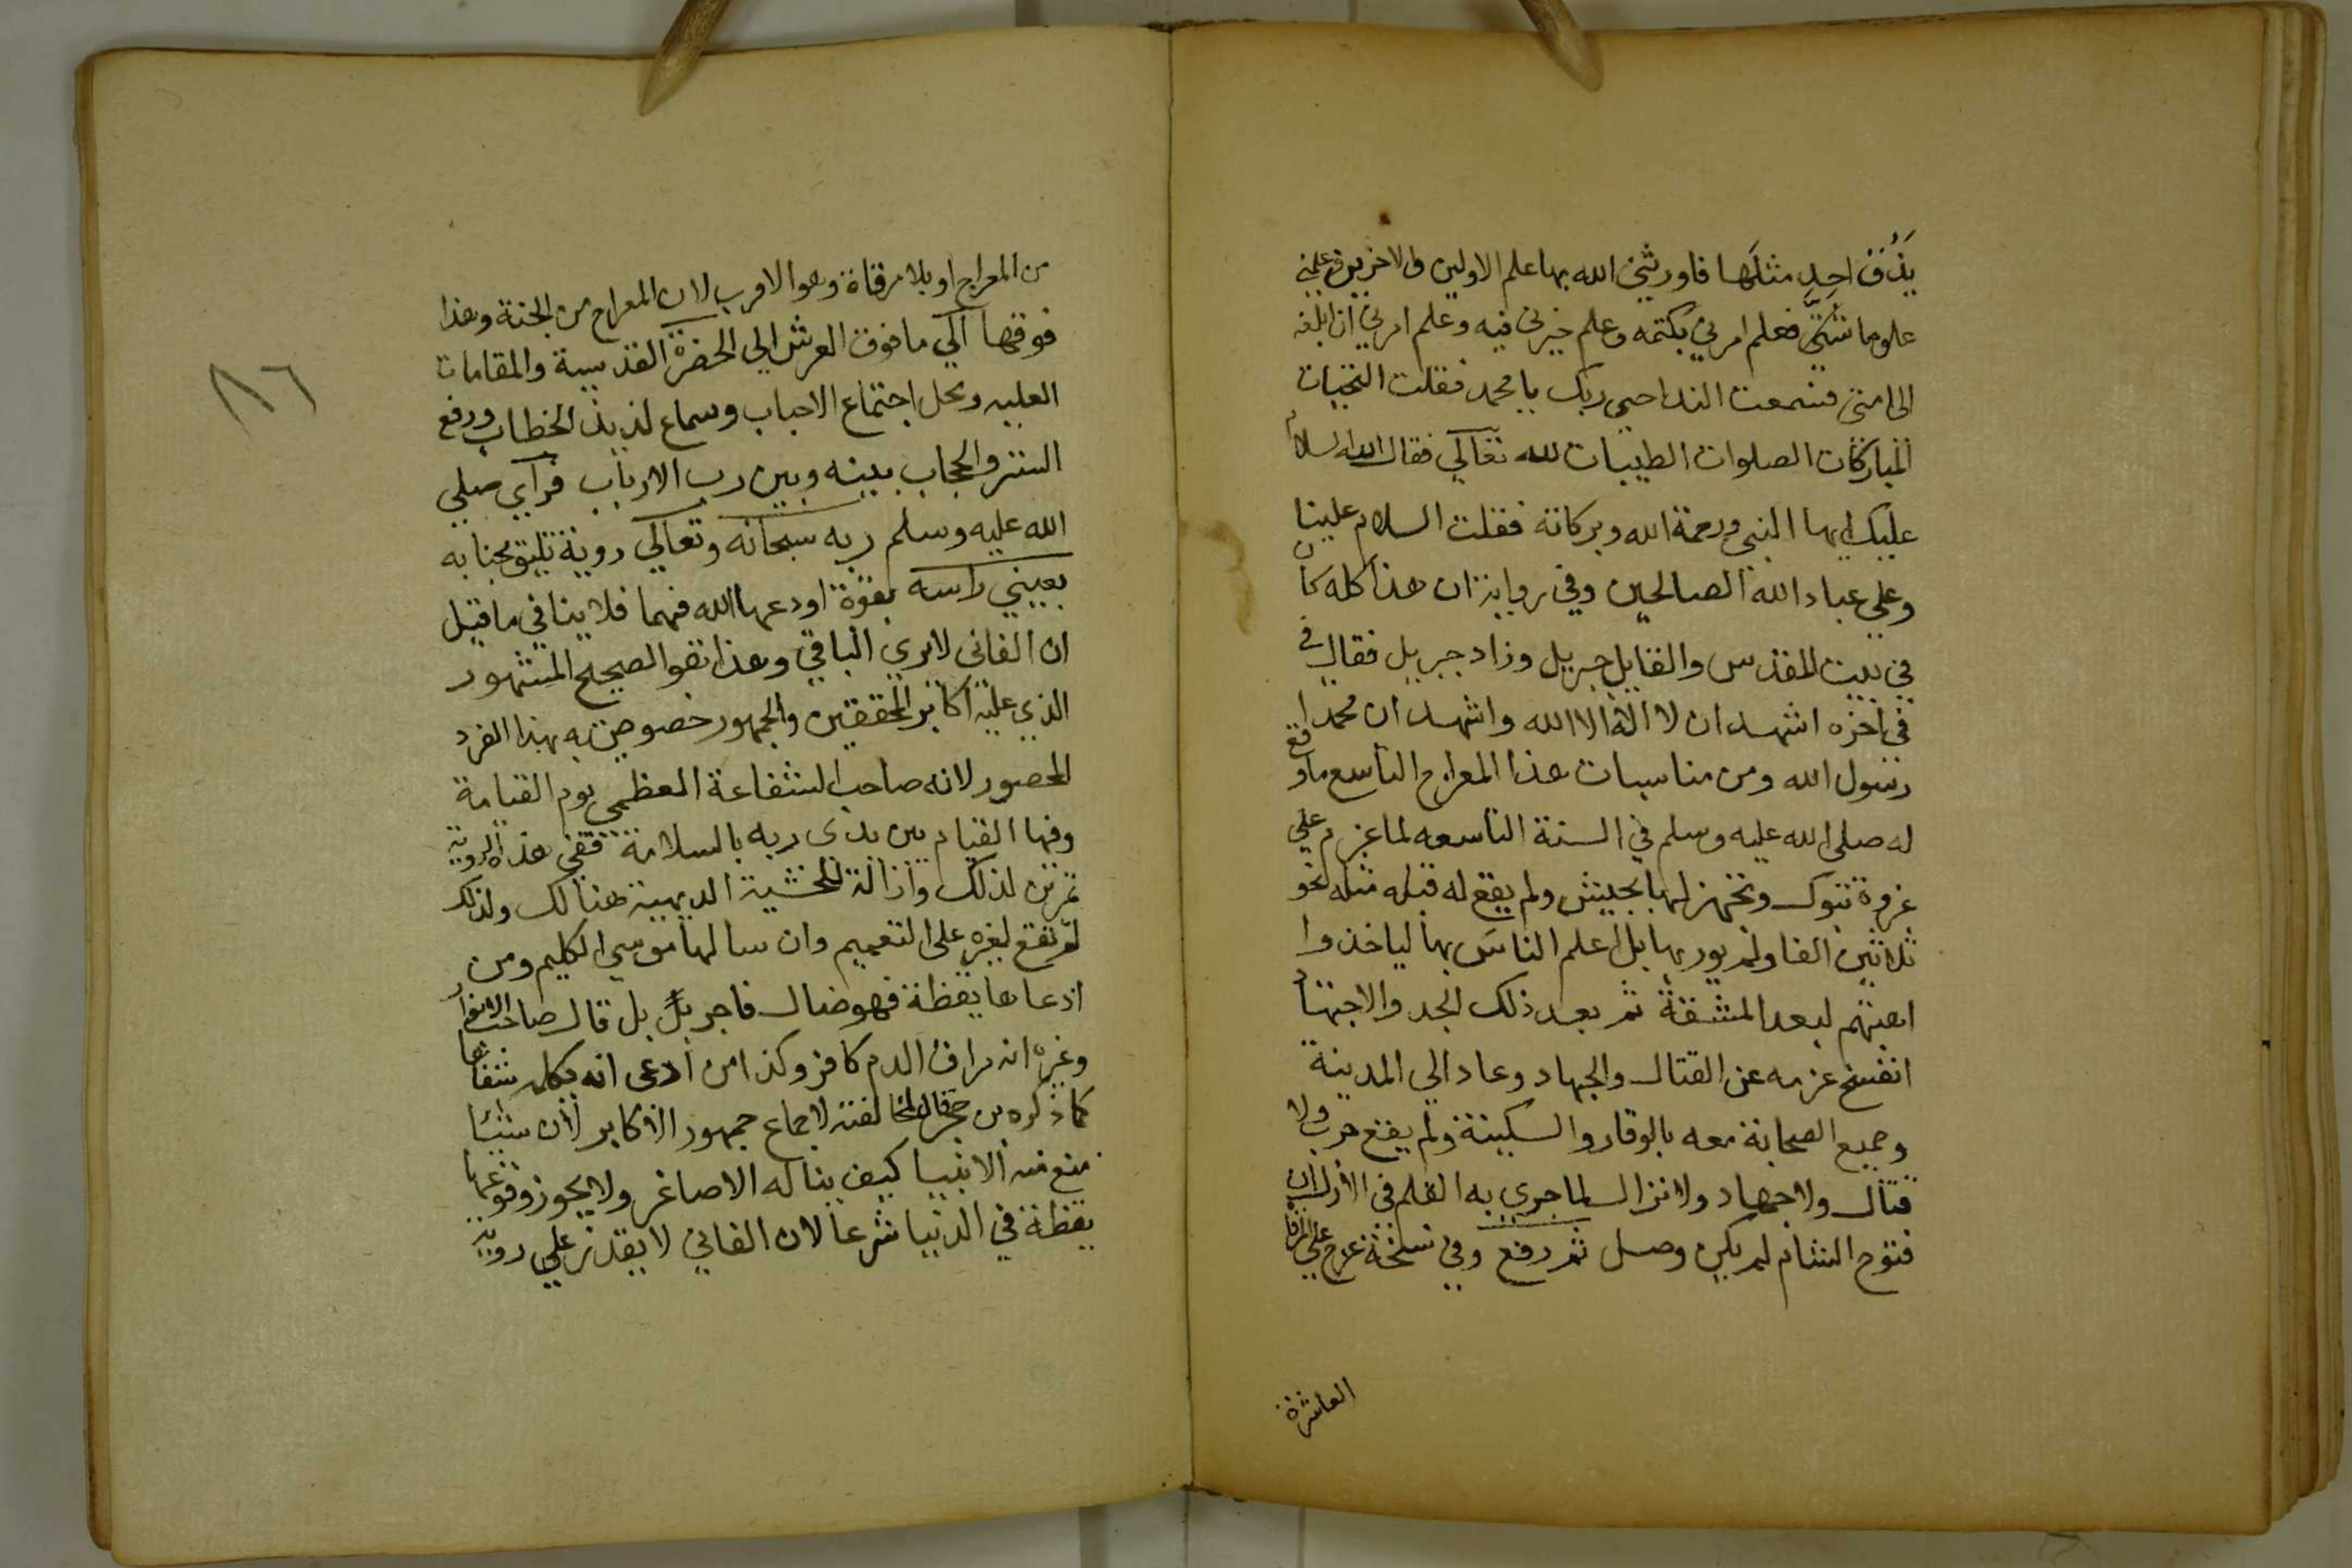 يذق احد مثلها فاورثني الله بها علم الاولين والاخرين وعلمني
علوما شتى فعلم امرني بكتمه وعلم خيرني فيه وعلم امرني ان ابلغه
الى امتي فسمعت الندا حيي ربك يا محمد فقلت التحيات
المباركات الصلوات الطيبات لله تعالي فقال الله السلام
عليك ايها النبي ورحمة الله وبركاته فقلت السلام علينا
وعلي عباد الله الصالحين وفي رواية ان هذا كله كان
في بيت المقدس والقايل جبريل وزاد جبريل فقال في
في اخره اشهد ان لا اله الا الله واشهد ان محمدا
رسول الله ومن مناسبات هذا المعراج التاسع ما وقع
له صلى الله عليه وسلم في السنة التاسعه لما عزم علي
غزوة تبوك وتجهز لها بجيش ولم يقع له قبله مثله نحو
ثلاثين الفا ولم يور بها بل اعلم الناس بها لياخذوا
اهبتهم لبعد المشقة ثم بعد ذلك الجد والاجتهاد
انفسخ عزمه عن القتال والجهاد وعاد الي المدينة
وجميع الصحابة معه بالوقار والسكينة ولم يقع حرب ولا
قتال ولا جهاد ولا نزال لما جري به القلم في الازل ان
فتوح الشام لم يكن وصل ثم رفع وفي نسخة عرج علي المرقاة
العاشرة
من المعراج او بلا مرقاة وهو الاقرب لان المعراج من الجنة وهذا
فوقها الي ما فوق العرش الي الحضرة القدسية والمقامات
العليه ومحل اجتماع الاحباب وسماع لذيذ الخطاب ورفع
الستر والحجاب بينه وبين رب الارباب فراي صلي
الله عليه وسلم ربه سبحانه وتعالي روية تليق بجنابه
بعيني راسه بقوة اودعها الله فيهما فلا ينافي ما قيل
ان الفاني لا يري الباقي وهذا هو الصحيح المشهور
الذي عليه اكابر المحققين والجمهور خصوصية به بهذا الفرد
الحصور لانه صاحب الشفاعة العظمي يوم القيامة
وفيها القيام بين يدي ربه بالسلامة ففي هذه الروية
تمرين لذلك وازالة للخشية البديهية هنالك ولذلك
لم تقع لغيره على التعميم وان سالها موسي الكليم ومن
ادعاها يقظة فهو ضال فاجر بل قال صاحب الانوار
وغيره انه مراق الدم كافر وكذا من ادعى انه يكلمه شفاها
كما ذكره بن حجر قال لمخالفته لاجماع جمهور الاكابر لان شيئا
منع منه الانبيا كيف يناله الاصاغر ولا يجوز وقوعها
يقظة في الدنيا شرعا لان الفاني لا يقدر علي روية
١١٦